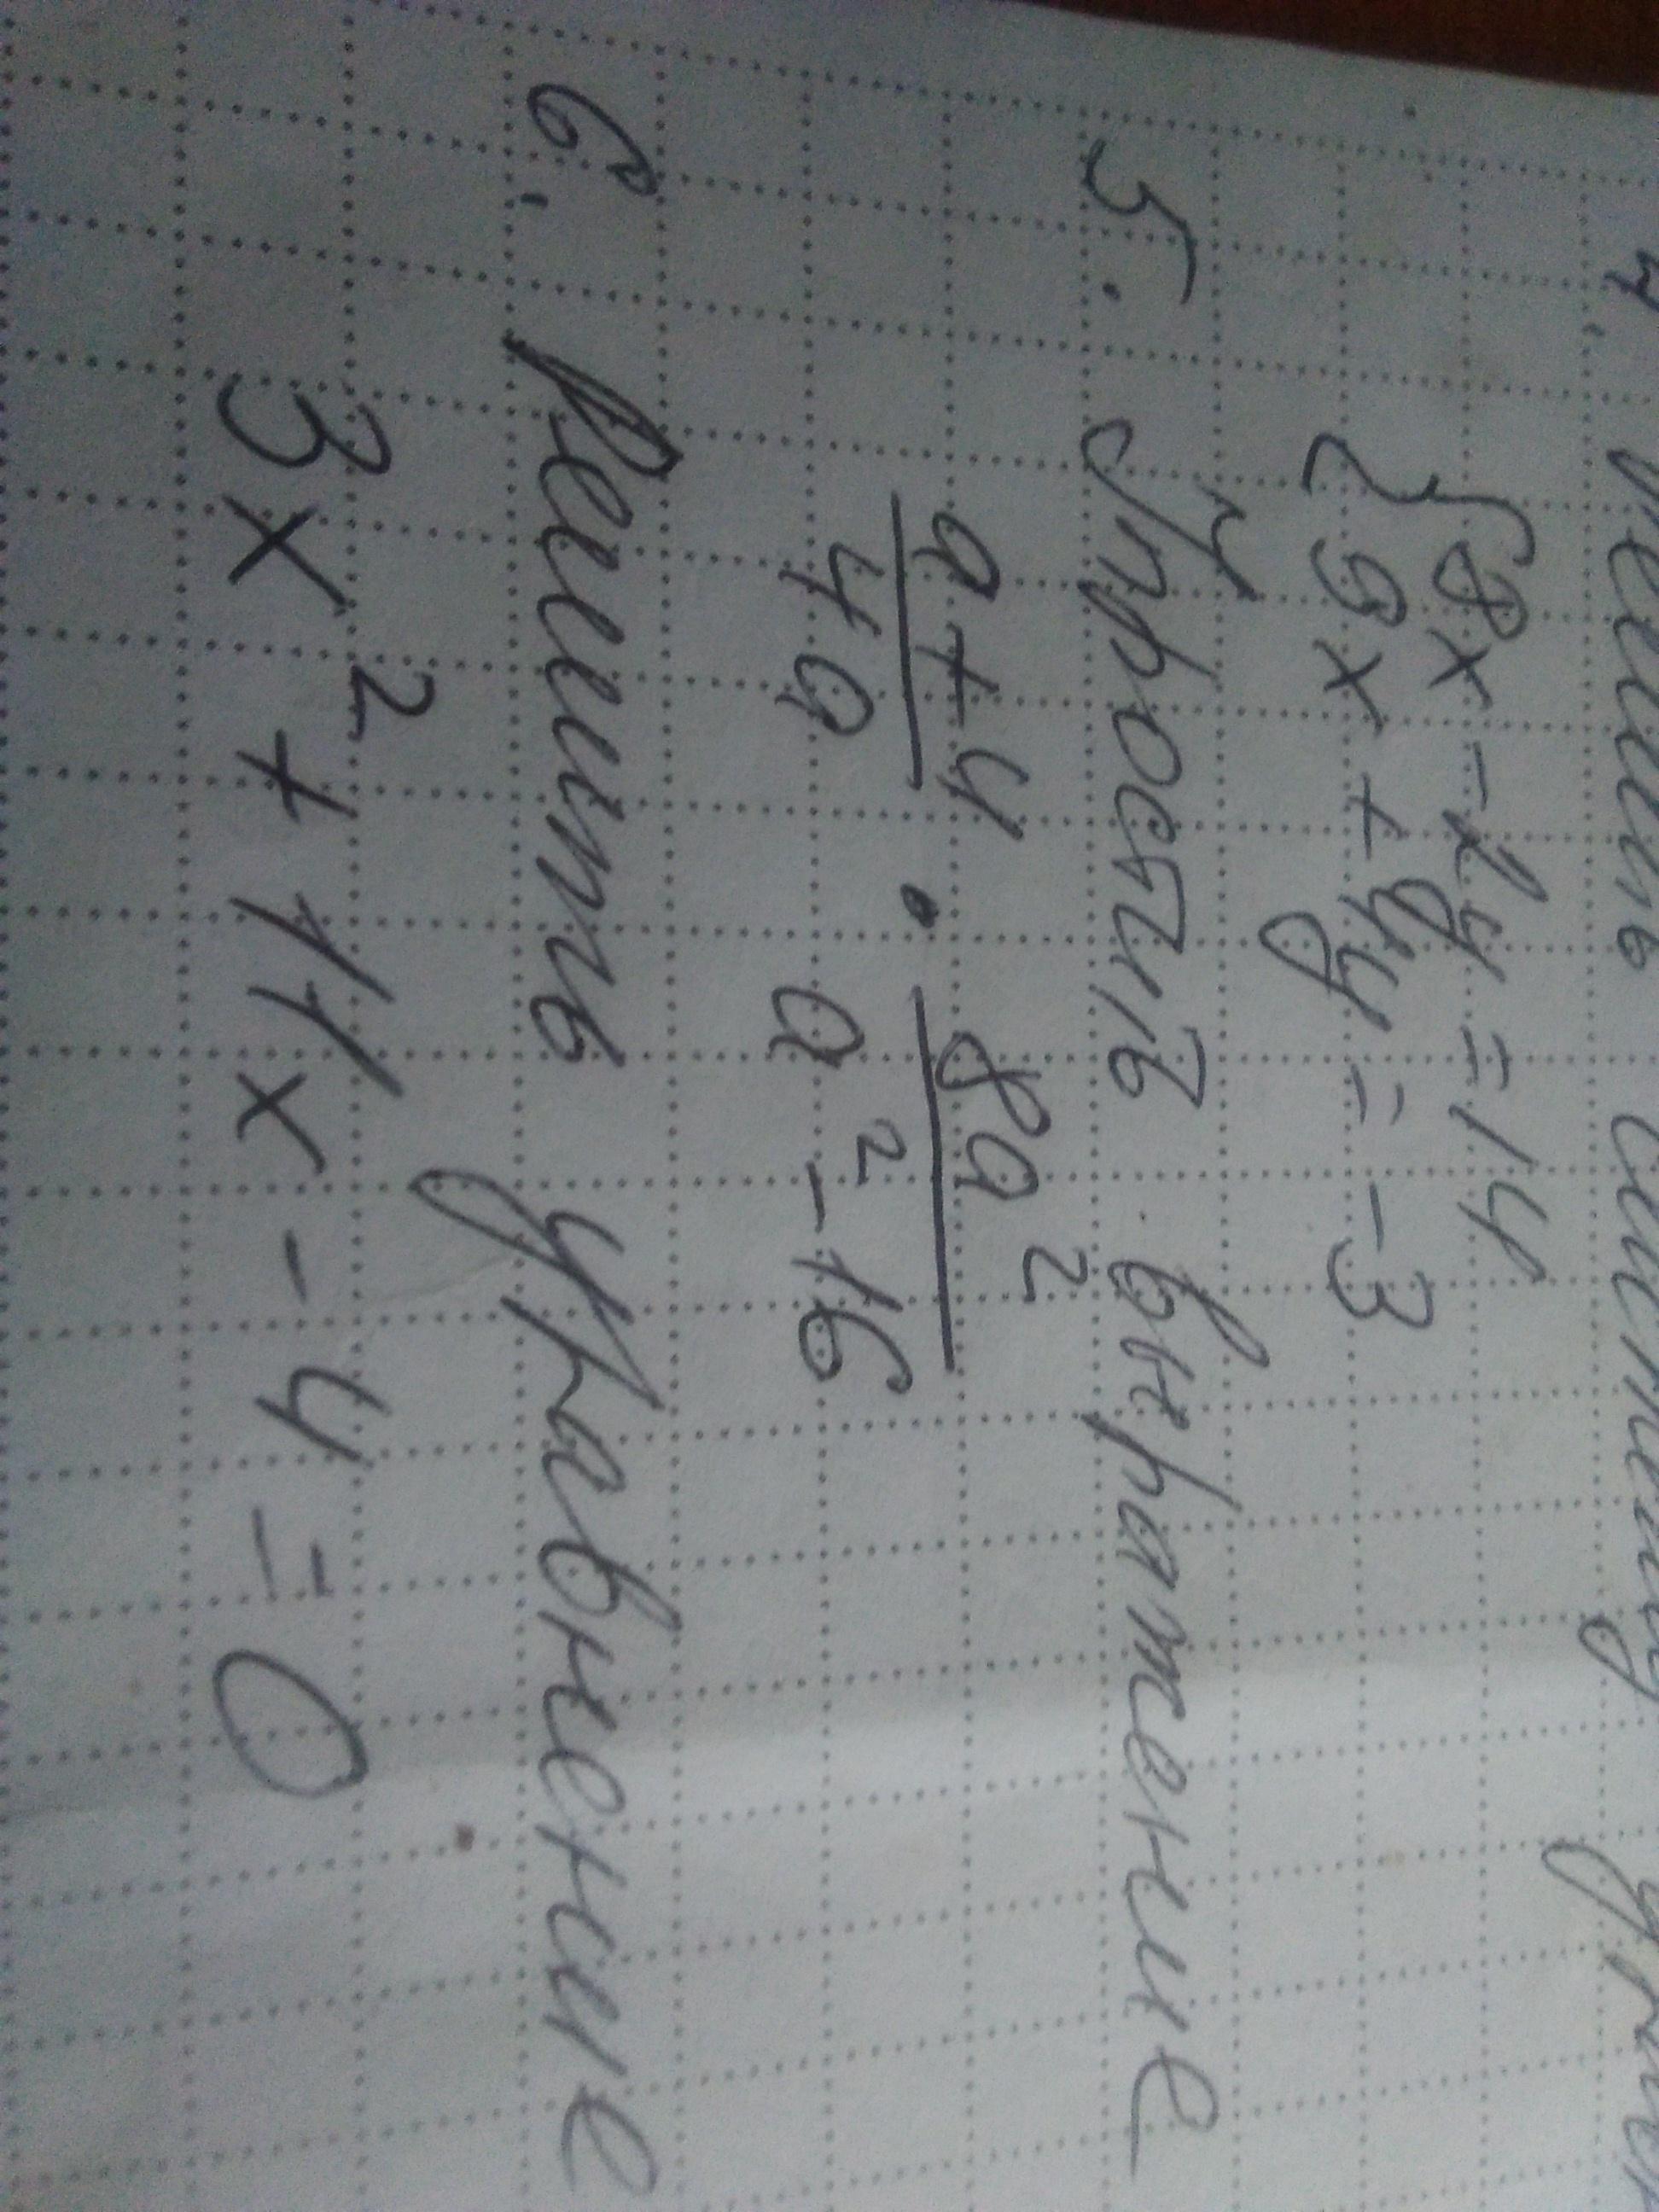 4. Решить систему
{ 8x - 2y = 14
9x + 4y = -3
5. Упростить выражение
a+4 / 4a · 8a² / a² - 16
6. Решить уравнение
3x² + 11x - 4 = 0